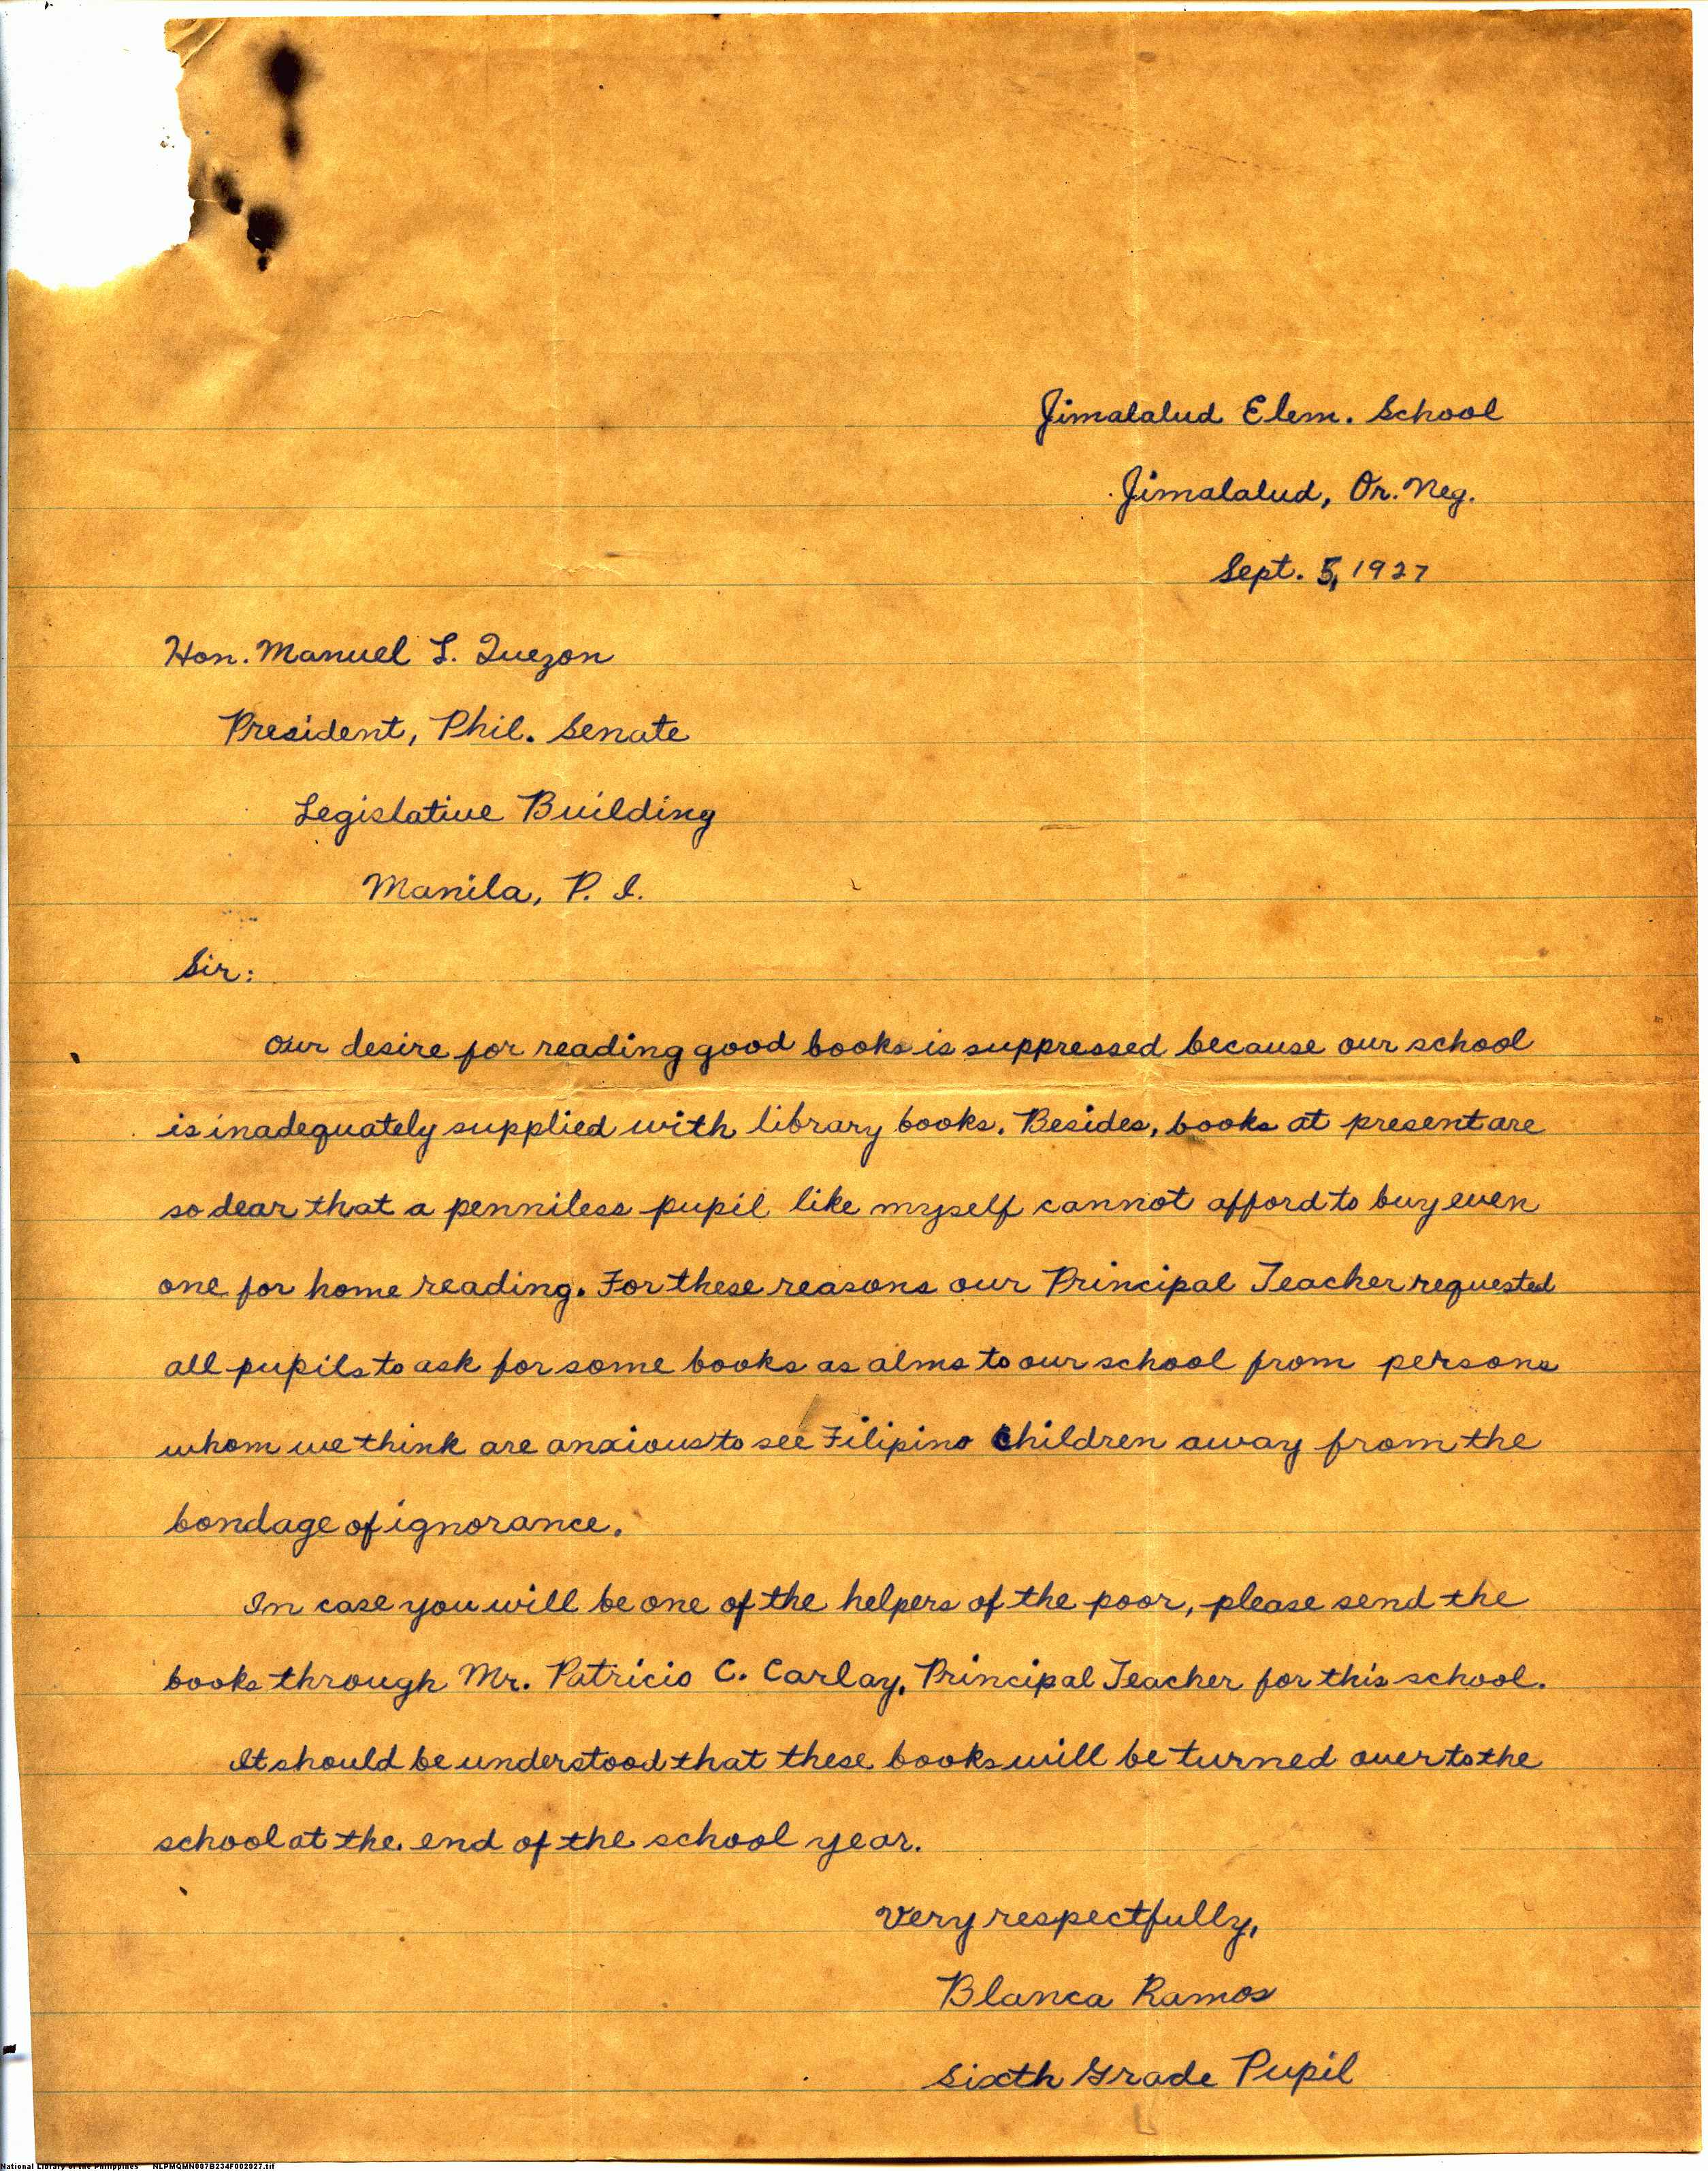 Jimalalud Elem. School
Jimalalud, Or. Neg.
Sept. 5, 1927
Hon. Manuel L. Quezon
President, Phil. Senate
Legislative Building
Manila, P. I.
Sir:
Our desire for reading good books is suppressed because our school
is inadequately supplied with library books. Besides, books at present are
so dear that a penniless pupil like myself cannot afford to buy even
one for home reading. For these reasons our Principal Teacher requested
all pupils to ask for some books as alms to our school from persons
whom we think are anxious to see Filipino Children away from the
bondage of ignorance.
In case you will be one of the helpers of the poor, please send the
books through Mr. Patricio C. Carlay, Principal Teacher for this school.
It should be understood that these books will be turned over to the
school at the end of the school year.
Very respectfully,
Blanca Ramos
Sixth Grade Pupil
National Library of the Philippines NLPMQMN007B234F002027.tif